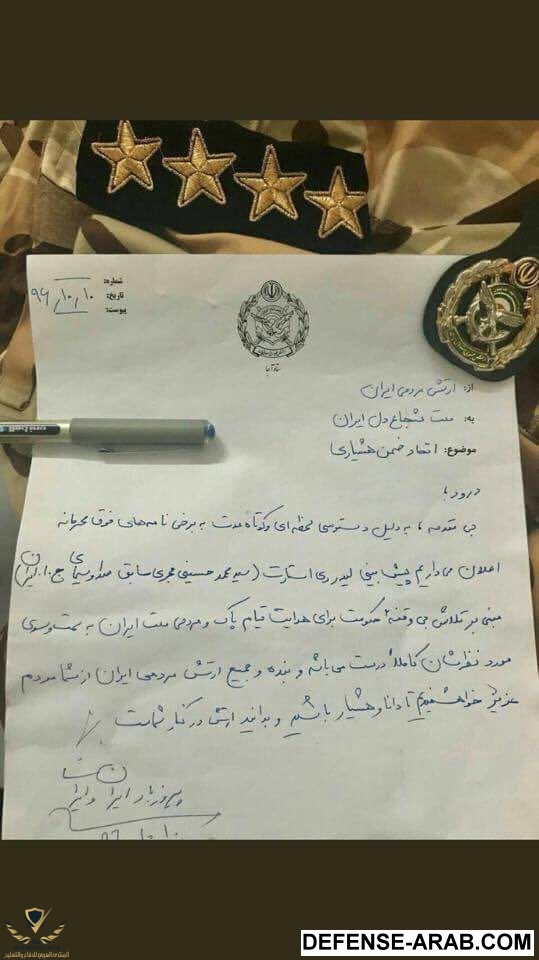 شماره:
تاریخ: ۹۶/۱۰/۱۰
پیوست:
ستاد آجا
از: ارتش مردمی ایران
به: ملت شجاع دل ایران
موضوع: اتحاد ضمن هشیاری
درود با
بی مقدمه، به دلیل دسترسی لحظه‌ای و کوتاه مدت به برخی نامه‌های فوق محرمانه
اعلان می داریم پیش بینی لیدر ری استارت (سید محمد حسینی مجری سابق صدا و سیمای ج.ا.ایران)
مبنی بر تلاش بی وقفهٔ حکومت برای هدایت قیام پاک و مردمی ملت ایران به سمت و سوی
مورد نظرشان کاملاً درست می باشد و بنده و جمیع ارتش مردمی ایران از شما مردم
عزیز خواهشمندیم تا دانا و هشیار باشید و بدانید ارتش در کنار شماست
پیروز باد ایران و
uni-ball
المنتدى العربي للدفاع والتسليح
DEFENSE-ARAB.COM